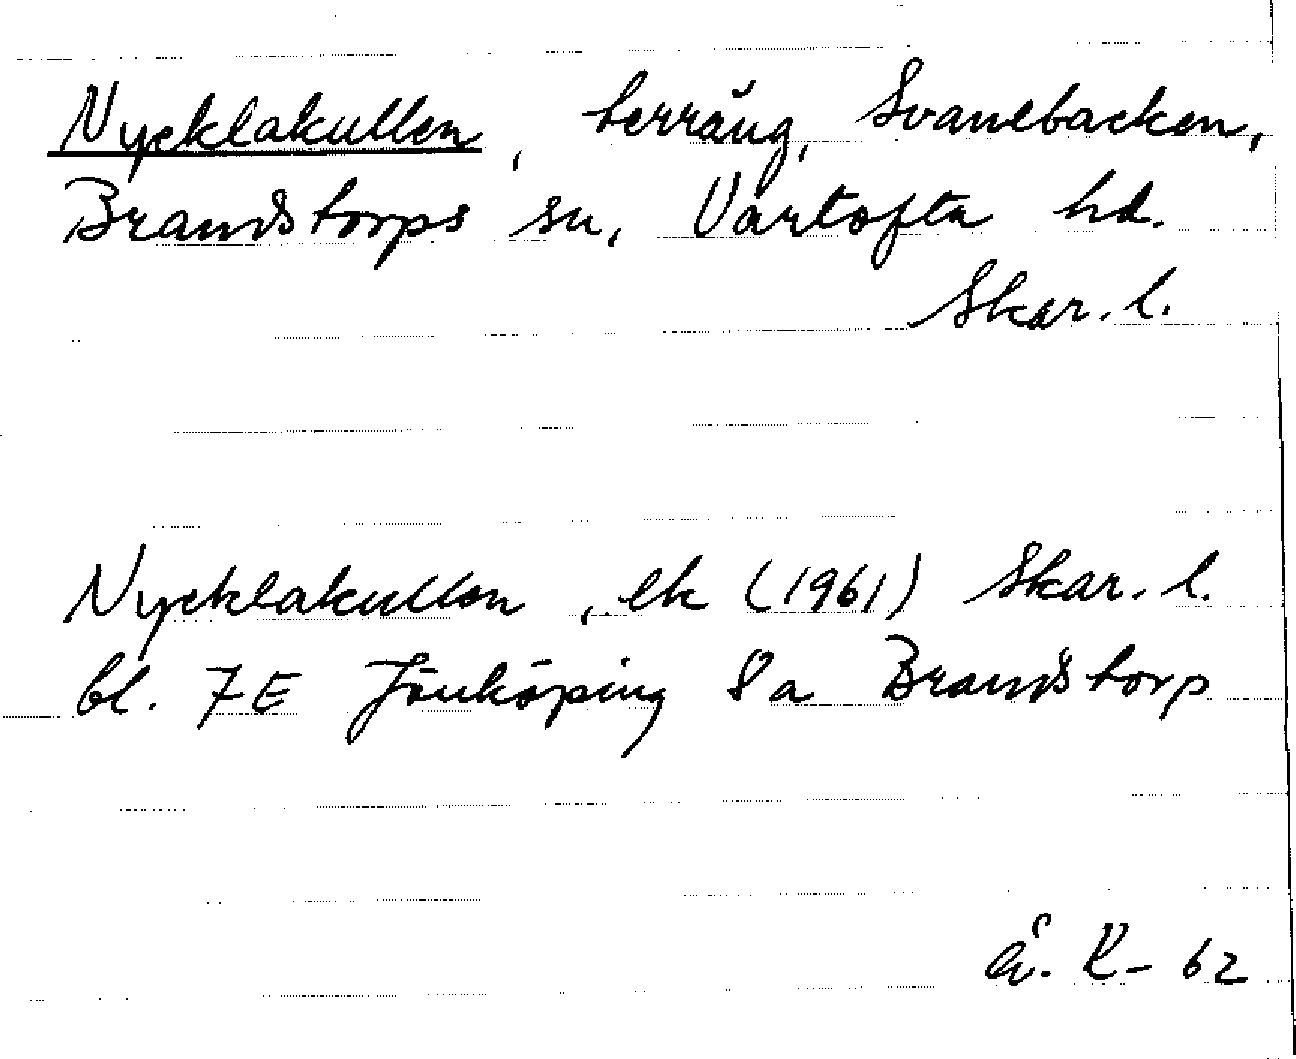 Nycklakullen, terräng, Svanebacken,
Brandstorps sn, Vartofta hd.
Skar. l.
Nycklakullen, ek (1961) Skar. l.
bl. 7E Jönköping 8a Brandstorp
Å. K-62